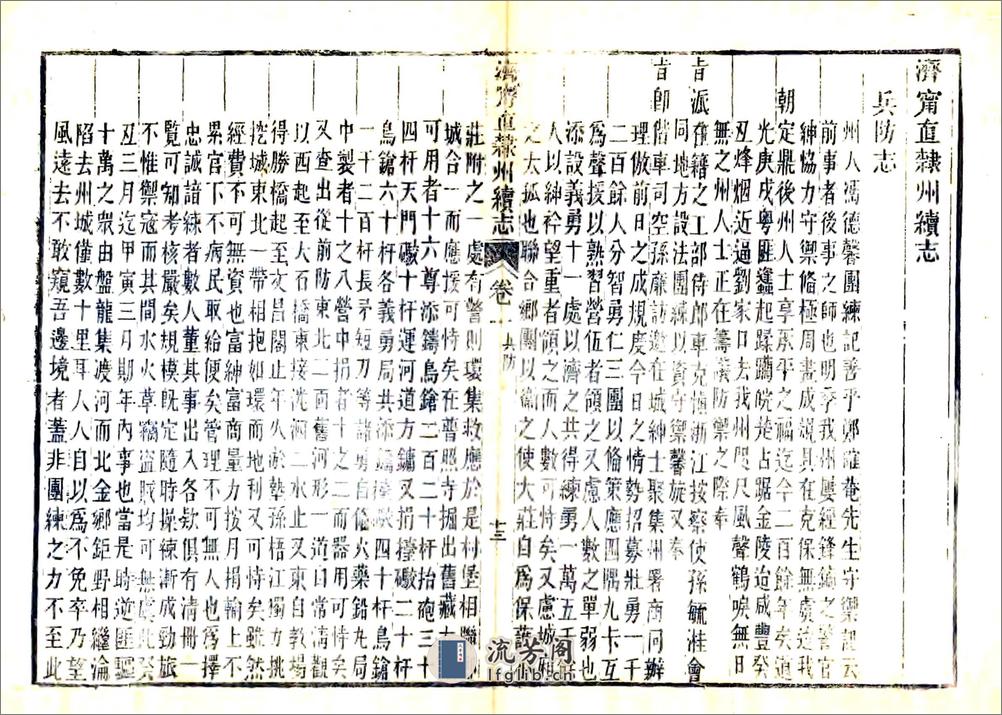 濟甯直隸州續志
兵防志
州人馮德馨團練記善乎鄭確菴先生守禦記云
前事者後事之師也明季我州屢經鋒鏑之警官
紳協力守禦僃極周晝成規具在克保無虞迨我
朝定鼎後州人士享承平之福迄今二百餘年矣道
光庚戌粵匪蠭起蹂躪皖楚占踞金陵迨咸豐癸
丑烽烟近逼劉家口去我州咫尺風聲鶴唳無日
無之州人士正在籌議防禦之際奉
旨派在籍之工部侍郎車克愼浙江按察使孫毓溎會
同地方設法團練以資守禦馨旋又奉
旨卽偕車司空孫廉訪邀在城紳士聚集州署商同辦
理倣前日之成規度今日之情勢招募壯勇一千
二百餘人分智勇仁三團以僃策應四隅九卡互
爲聲援以熟習營伍者領之又慮人數之單弱也
添設義勇十一處以濟之共得練勇一萬五千
人以紳衿望重者領之而人數可恃矣又慮城
之太孤也聯合鄉團以衞之使大莊自爲保護
濟甯直隸州續志 卷一 兵防 十三
莊附之一處有警則環集救應於是村堡相聯
城合一而應援可恃矣在普照寺掘出舊藏大
可用者十六尊添鑄鳥鎗二百二十杆抬砲三十
四杆天門礮十杆運河道方鏞又捐擡礮二十杆
鳥鎗六十杆各義勇局共添擡礮四十杆鳥鎗
一千二百杆長矛短刀等諸勇自僃火藥鉛丸局
中製者十之八營中捐者十之二而器用可恃矣
又查出從前防東北二面舊河形一道自常淸觀
以西起至大石橋東接洸泗二水止又東自教場
得勝橋起至文昌閣止年久淤墊獨力挑
挖城東北一帶相抱如環而地利又可恃矣雖然
經費不可無資也富紳富商量力按月捐輸上不
累官下不病民取給便矣管理不可無人也爲擇
忠誠諳練者數人董其事出入各欵俱有淸冊一
覽可知考核嚴矣規模旣定隨時操練漸成勁旅
不惟禦寇而其間水火草竊盜賊均可無虞此癸
丑三月迄甲寅三月期年內事也當是時逆匪驅
十萬之眾由盤龍集渡河而北金鄉鉅野相繼淪
陷去州城僅數十里耳人人自以爲不免卒乃望
風遠去不敢窺吾邊境者蓋非團練之力不至此
流芳閣
lfglib.cn